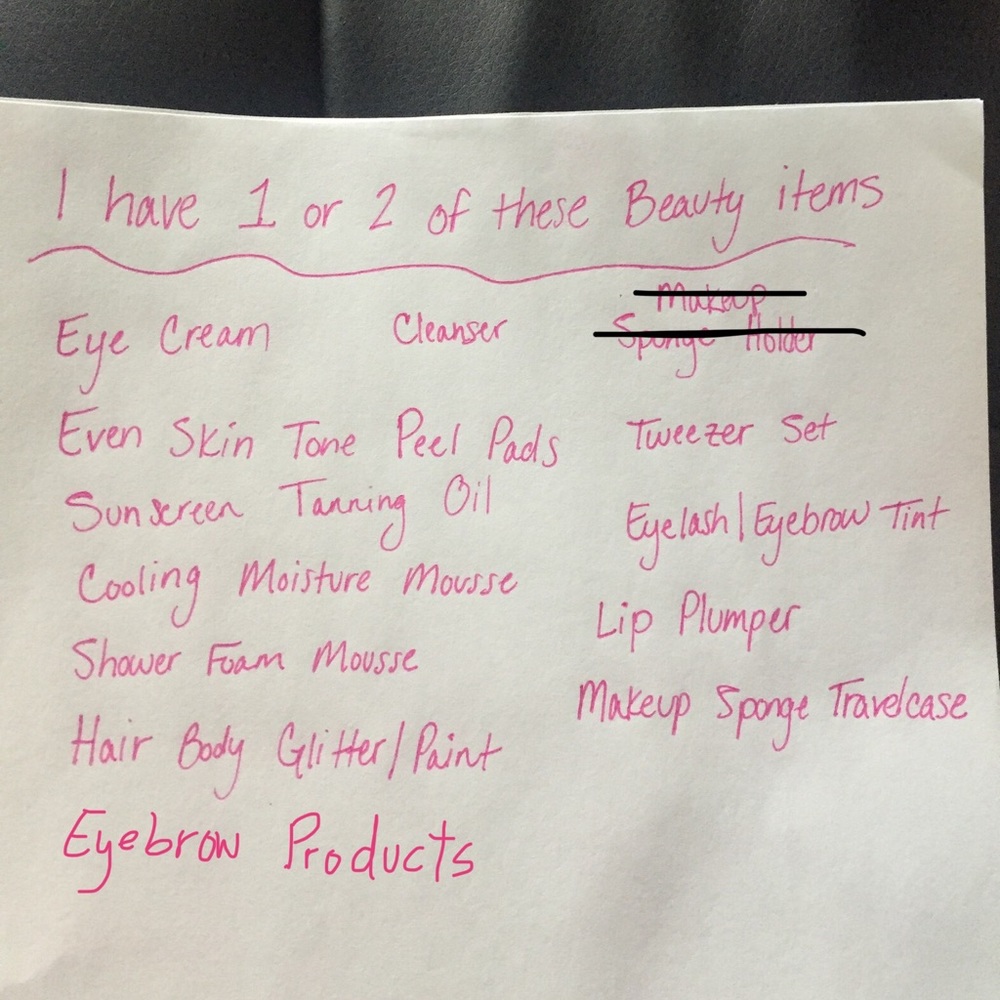 I have 1 or 2 of these Beauty items
Eye Cream
Cleanser
Makeup
Sponge Holder
Even Skin Tone Peel Pads
Tweezer Set
Sunscreen Tanning Oil
Eyelash|Eyebrow Tint
Cooling Moisture Mousse
Lip Plumper
Shower Foam Mousse
Makeup Sponge Travelcase
Hair Body Glitter/Paint
Eyebrow Products